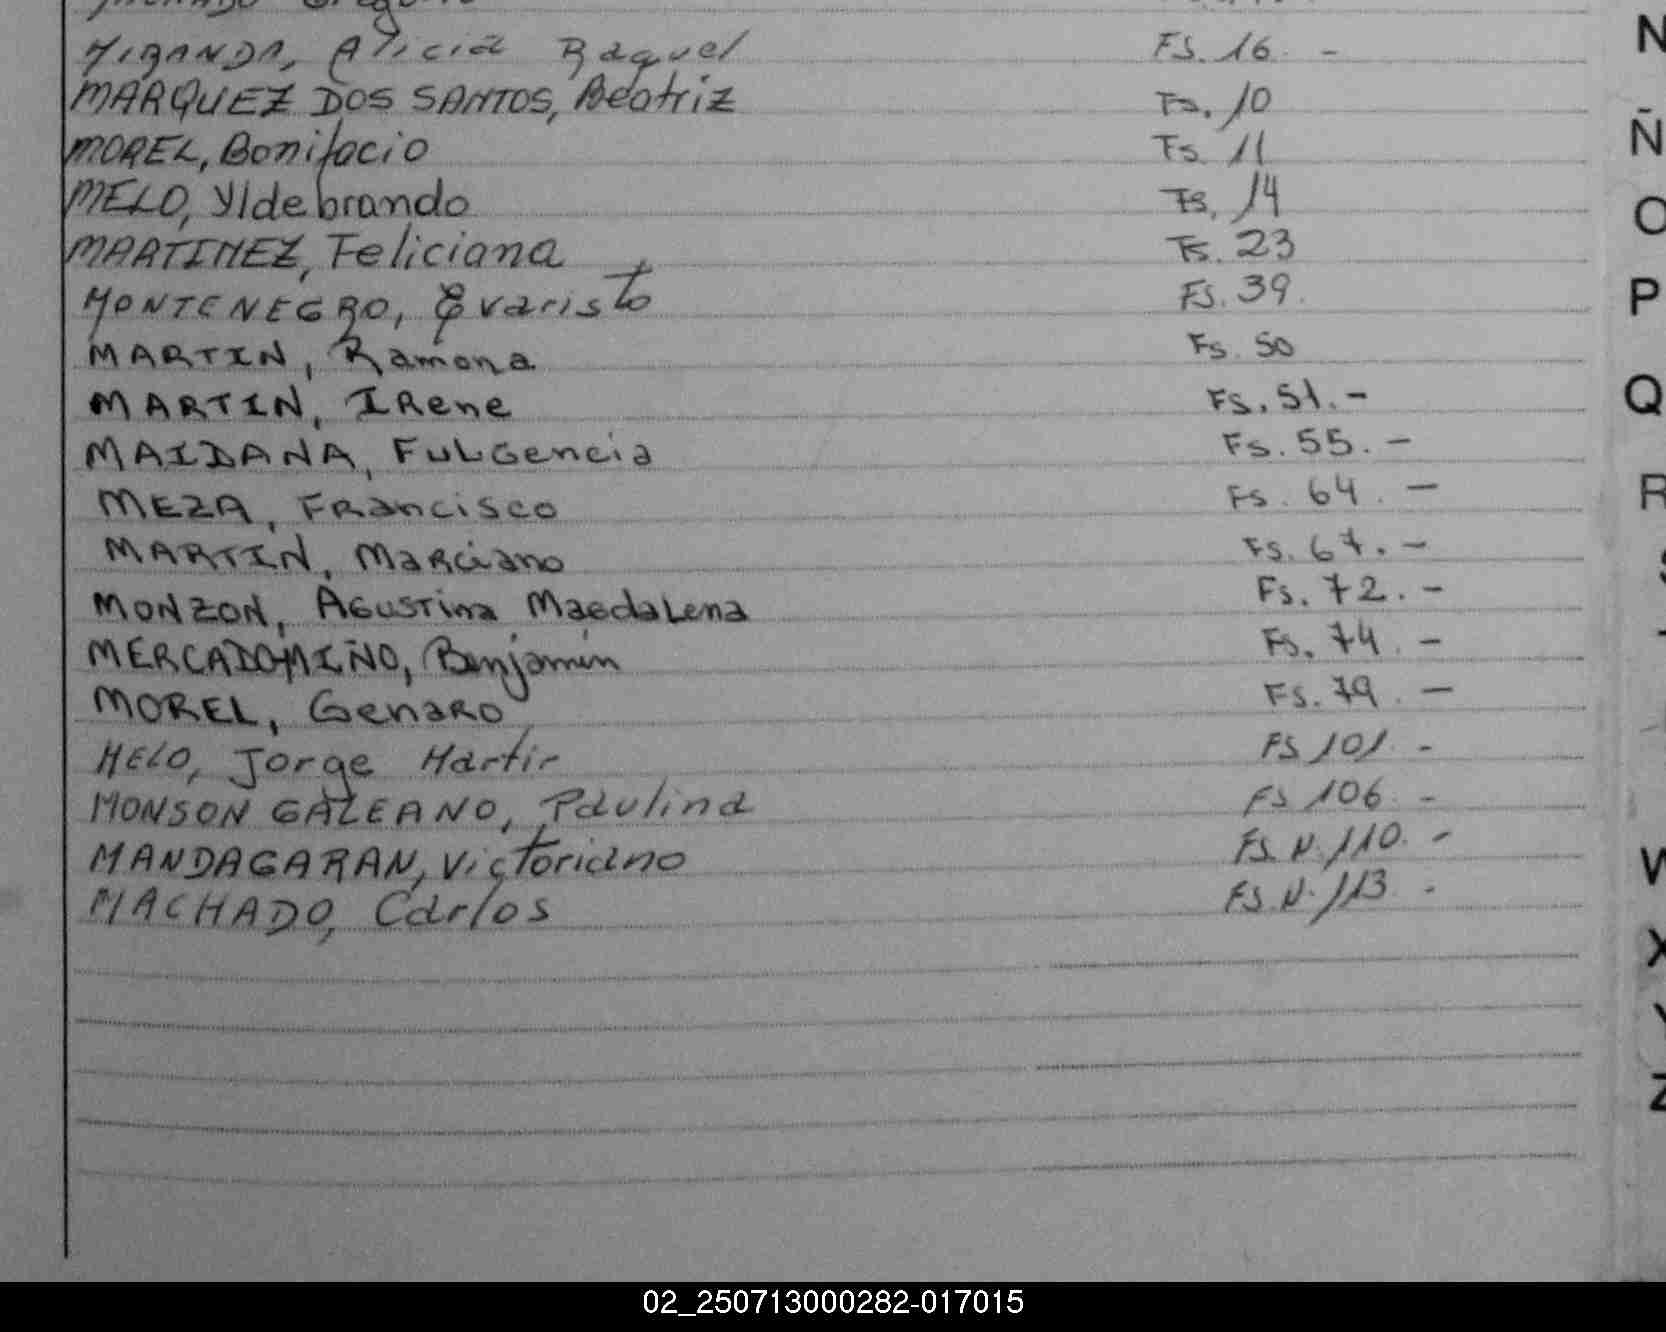 MIRANDA, Alicia Raquel Fs. 16. -
MARQUEZ DOS SANTOS, Beatriz Fs. 10
MOREL, Bonifacio Fs. 11
MELO, Yldebrando Fs. 14
MARTINEZ, Feliciana Fs. 23
MONTENEGRO, Evaristo Fs. 39.
MARTIN, Ramona Fs. 50
MARTIN, IRene Fs. 51.-
MAIDANA, FULGencia Fs. 55. -
MEZA, FRancisco Fs. 64. -
MARTIN, MaRciano Fs. 67. -
MONZON, AGUSTina MaGdaLena Fs. 72. -
MERCADO MIÑO, Benjamin Fs. 74. -
MOREL, GenaRo Fs. 79. -
MELO, Jorge Martir FS 101. -
MONSON GALEANO, Paulina FS 106. -
MANDAGARAN, Victoriano FS. N. 110. -
MACHADO, Carlos FS. N. 113. -
N
Ñ
O
P
Q
R
W
X
Y
Z
02_250713000282-017015